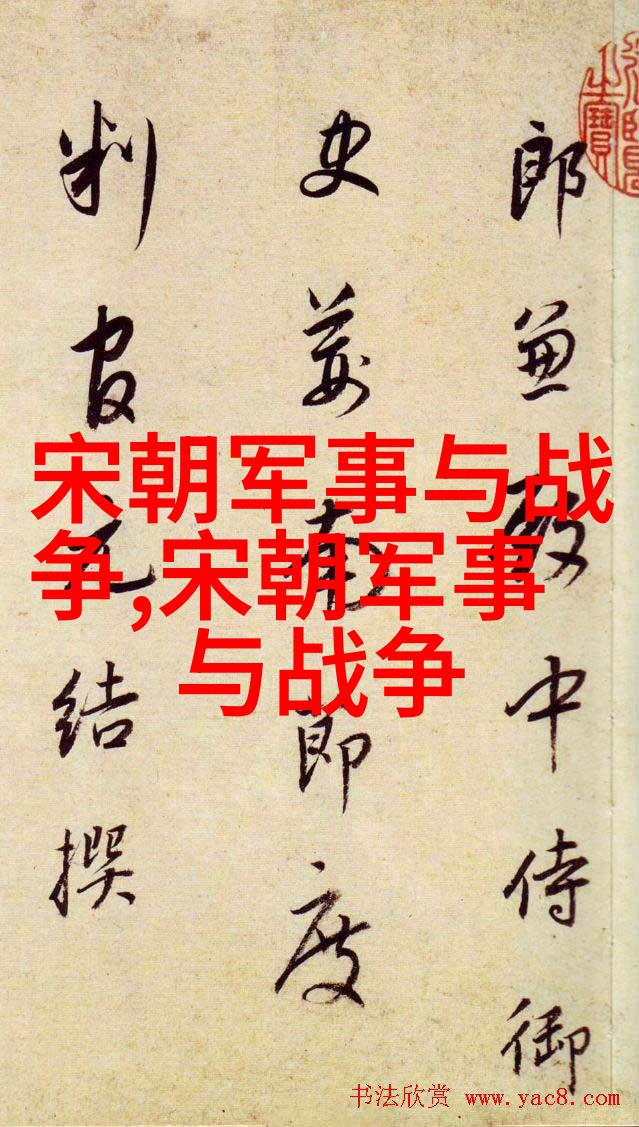 郎兼殿中侍御
史荆南節度
判官元结撰
宋朝军事与战
争,宋朝军事
与战争
书法欣赏 www.yac8.com